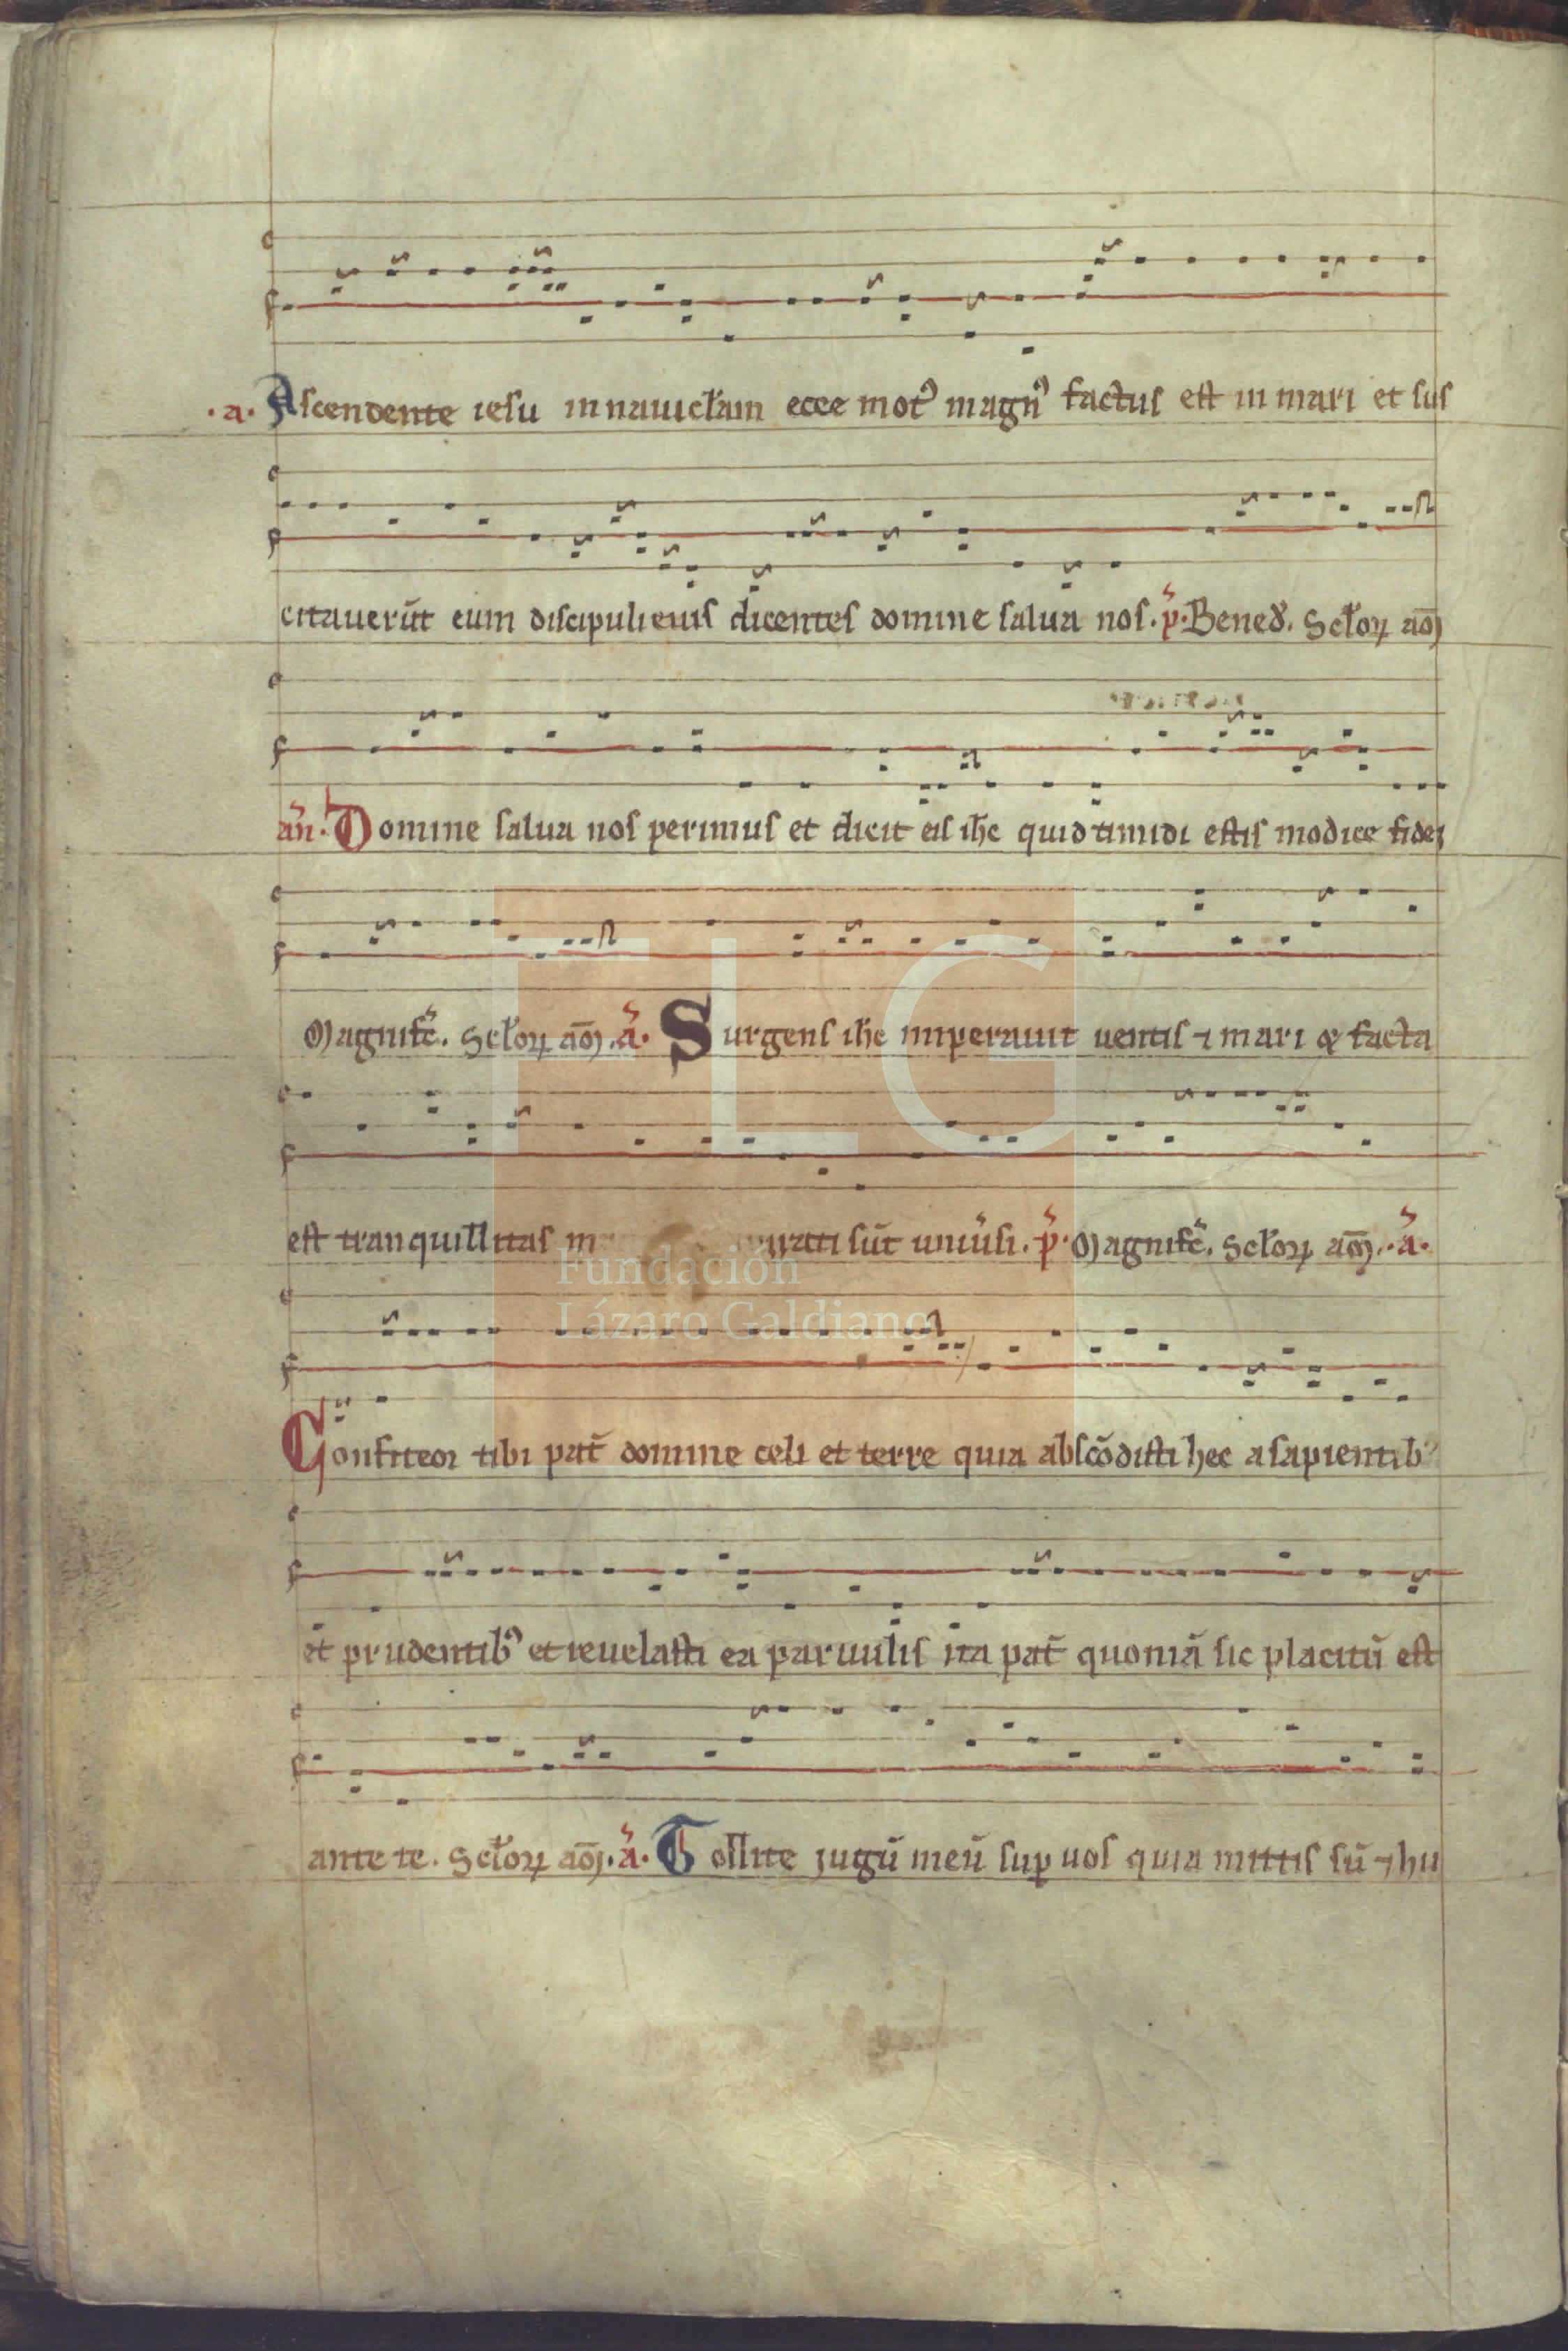 .a. Ascendente iesu in nauicl̄am ecce mot᷒ magn᷒ factus est in mari et sus
citauerūt eum discipuli eius dicentes domine salua nos. p̄. Bened̄. Scl̄oꝝ am̄
an̄. Domine salua nos perimus et dicit eis ih̄c quid timidi estis modice fidei
Magnifc̄. Scl̄oꝝ am̄. ā. Surgens ih̄c imperauit uentis ⁊ mari & facta
est tranquillitas m rati sūt uniūsi. p̄. Magnifc̄. Scl̄oꝝ am̄. ā.
Confiteor tibi pat̄ domine celi et terre quia abscōdisti hec a sapientib᷒
et prudentib᷒ et reuelasti ea paruulis ita pat̄ quoniā sic placitū est
ante te. Scl̄oꝝ am̄. ā. Tollite jugū meū suꝑ uos quia mittis sū ⁊ hu
FLG
Fundación
Lázaro Galdiano